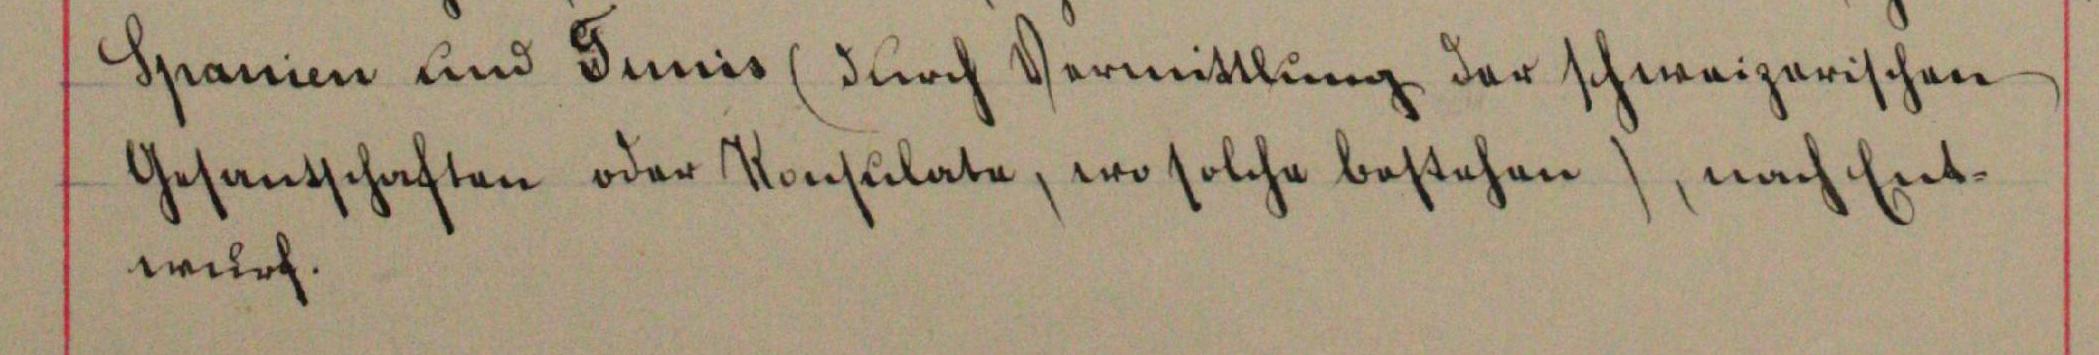 Spanien und Tunis (durch Vermittlung der schweizerischen
Gesantschaften oder Konsulate, wo solche bestehen), nach Ent-
wurf.